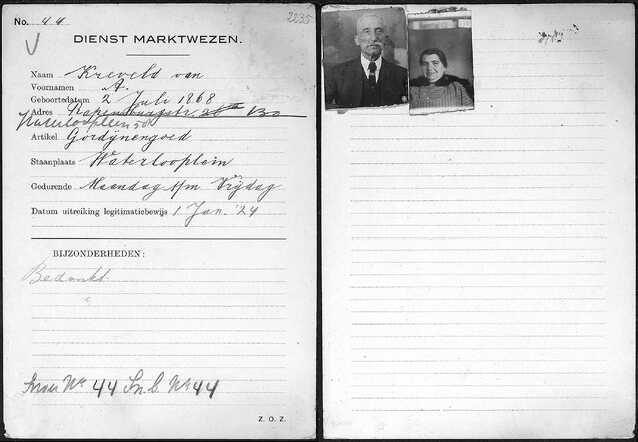 No. 44
2235
V
DIENST MARKTWEZEN.
Naam Kreveld van
Voornamen A.
Geboortedatum 2 Juli 1868
Adres Rapenburgstr.
Waterlooplein
Artikel Gordijnengoed
Staanplaats Waterlooplein
Gedurende Maandag t/m Vrijdag
Datum uitreiking legitimatiebewijs 1 Jan. '24
BIJZONDERHEDEN:
Bedankt.
Nr 44 Nr 44
Z. O. Z.